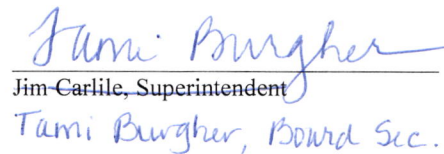 Tami Burgher
Jim Carlile, Superintendent
Tami Burgher, Board Sec.